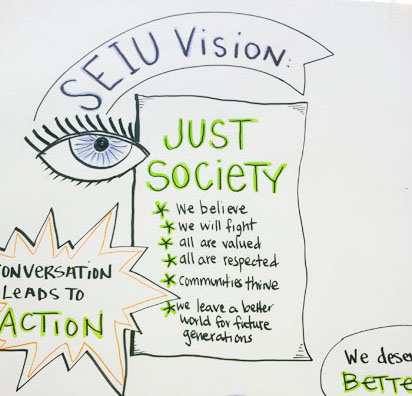 SEIU Vision:
JUST
SOCIETY
* We believe
* we will fight
* all are valued
* all are respected
* communities thrive
* we leave a better
world for future
generations
CONVERSATION
LEADS TO
ACTION
We deser
BETTE